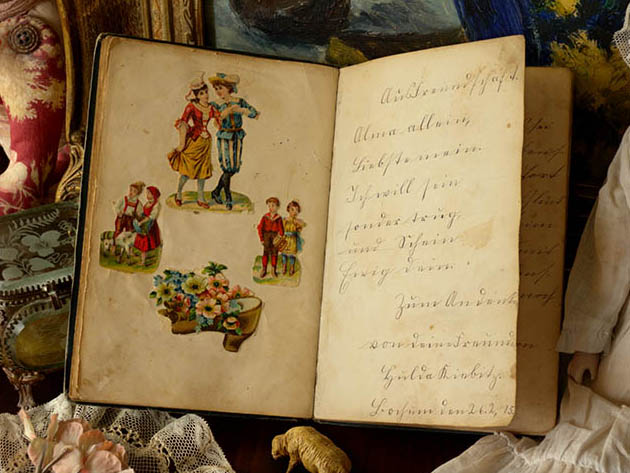 Aus Freundschaft.
Alma allein,
Liebste mein.
Ich will sein
sonder trug
und Schein
Ewig dein.
Zum Andenk
von deine Freundin
Hulda Kiebitz.
Bochum den 26.2.